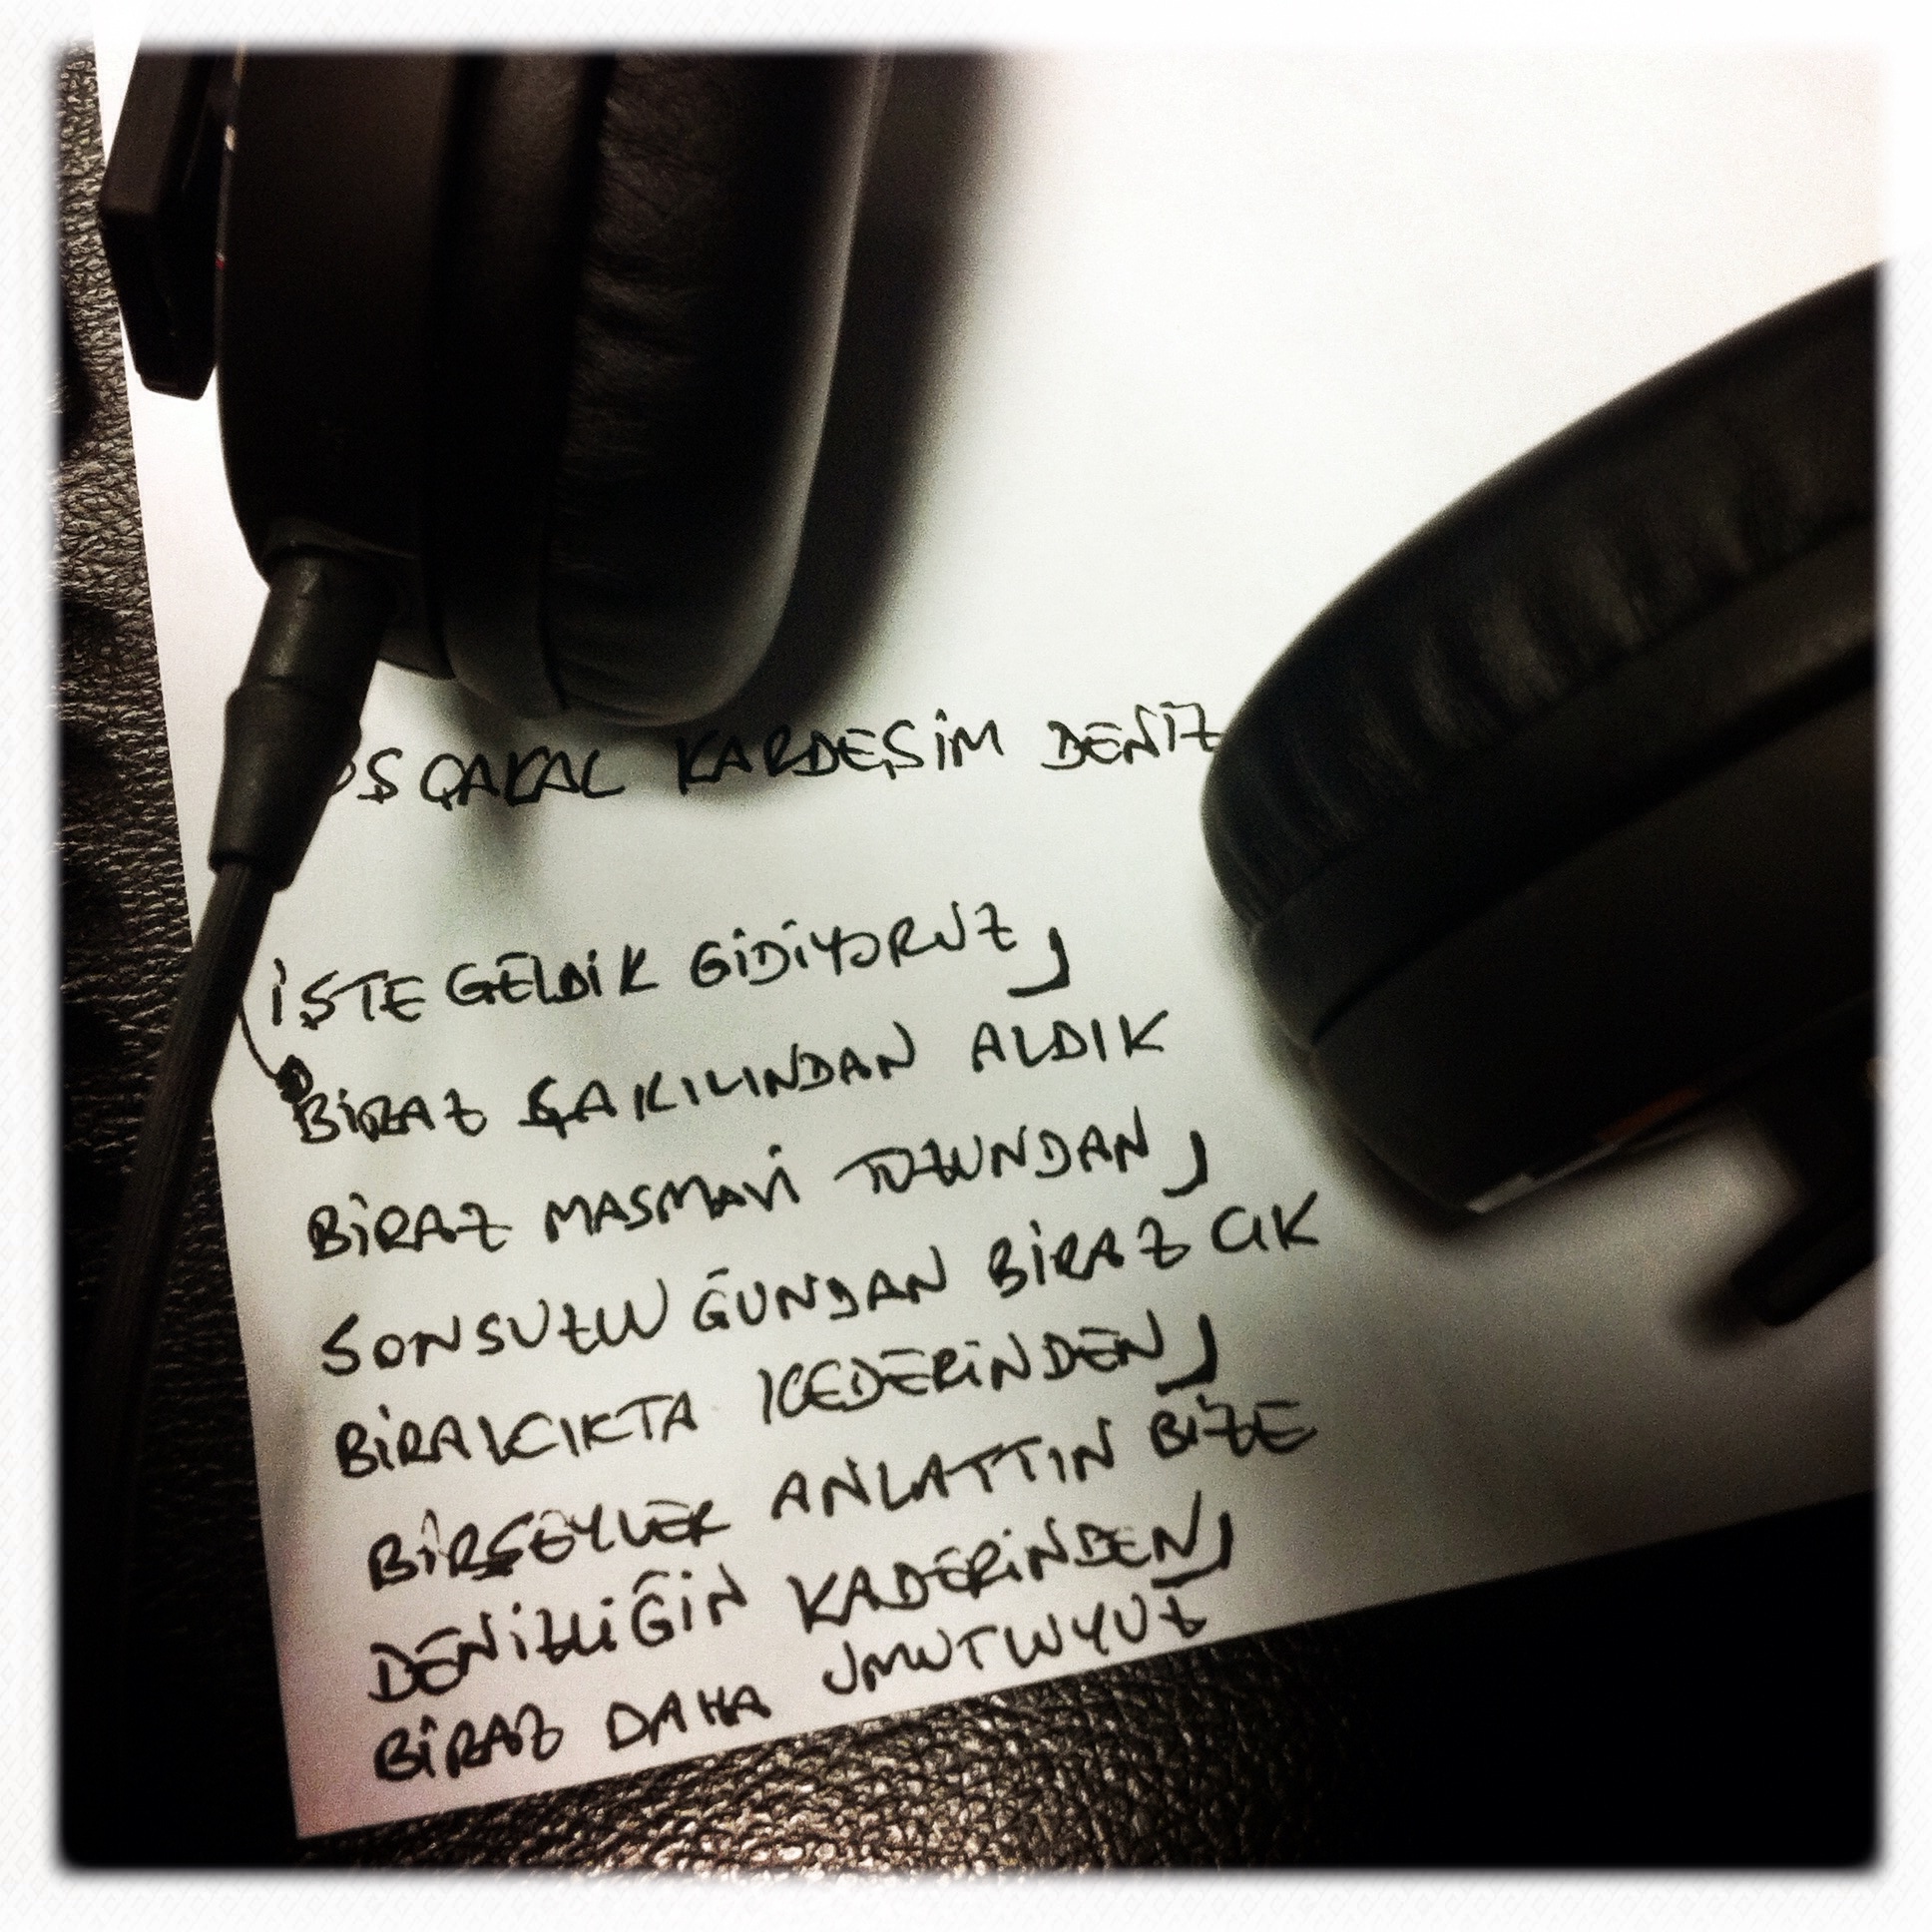 OŞÇAKAL KARDEŞİM DENİZ
İŞTE GELDİK GİDİYORUZ,
BİRAZ ÇAKILINDAN ALDIK
BİRAZ MASMAVİ TUZUNDAN,
SONSUZLUĞUNDAN BİRAZCIK
BİRAZCIKTA KEDERİNDEN,
BİRŞEYLER ANLATTIN BİZE
DENİZLİĞİN KADERİNDEN,
BİRAZ DAHA UMUTLUYUZ